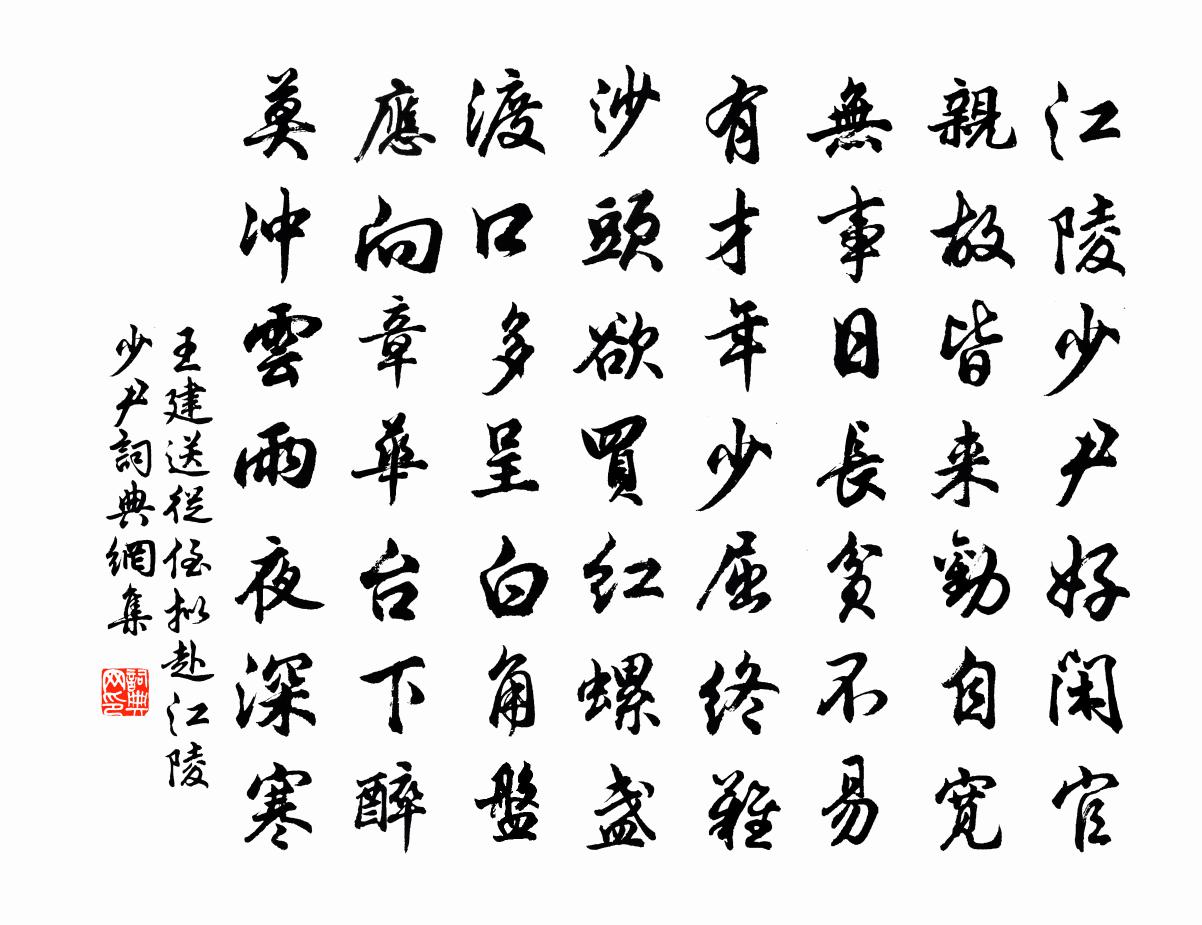 江陵少尹好閑官
親故皆来勸自寬
無事日長貧不易
有才年少屈終難
沙頭欲買红螺盏
渡口多呈白角盤
應向章華台下醉
莫冲雲雨夜深寒
王建送從侄拟赴江陵
少尹詞典網集
詞典网印